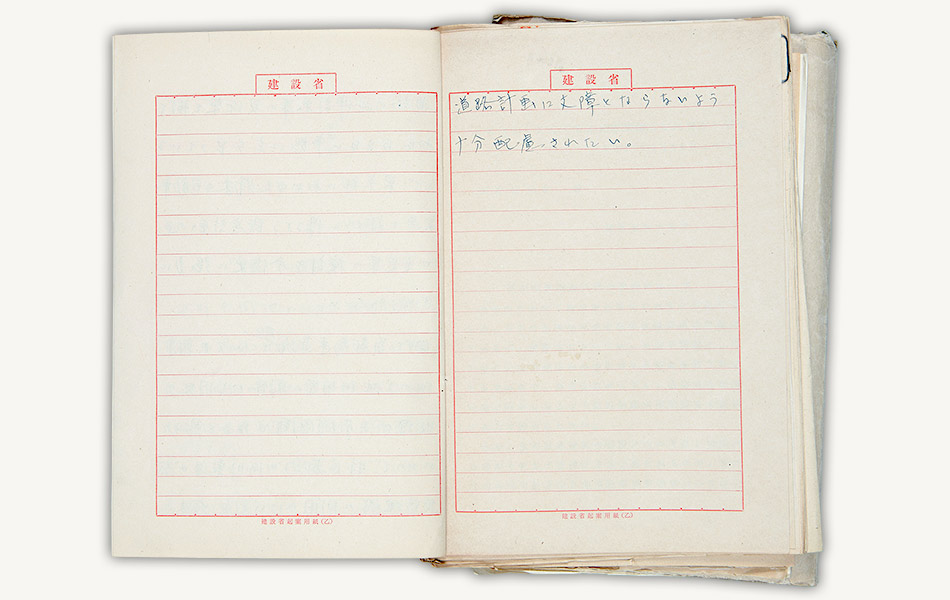 建設省
建設省起案用紙(乙)
建設省
道路計画に支障とならないよう
十分配慮されたい。
建設省起案用紙(乙)